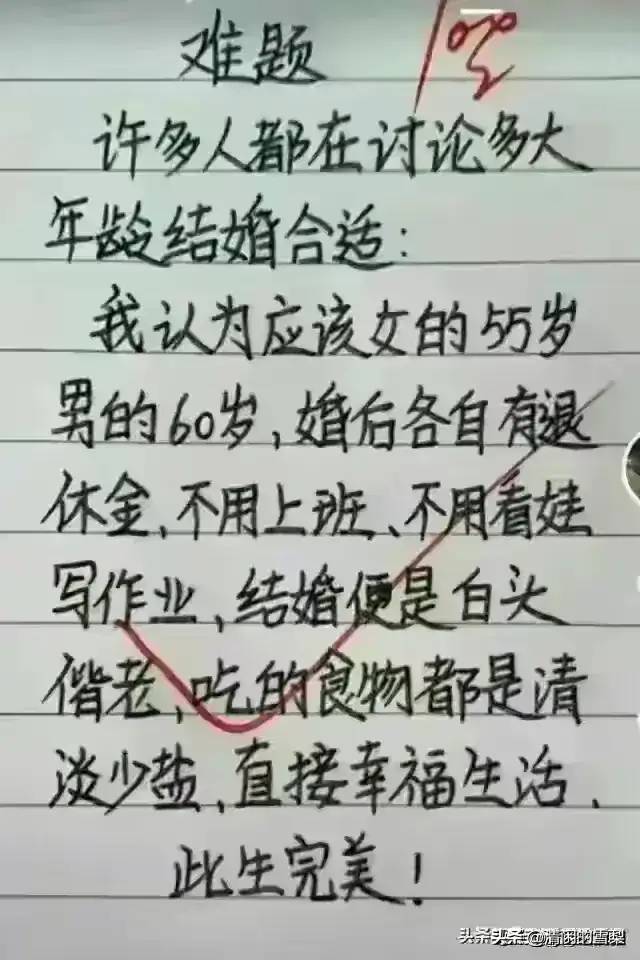 难题
许多人都在讨论多大
年龄结婚合适:
我认为应该女的55岁
男的60岁,婚后各自有退
休金、不用上班、不用看娃
写作业,结婚便是白头
偕老,吃的食物都是清
淡少盐,直接幸福生活,
此生完美!
头条 @清羽的雪梨